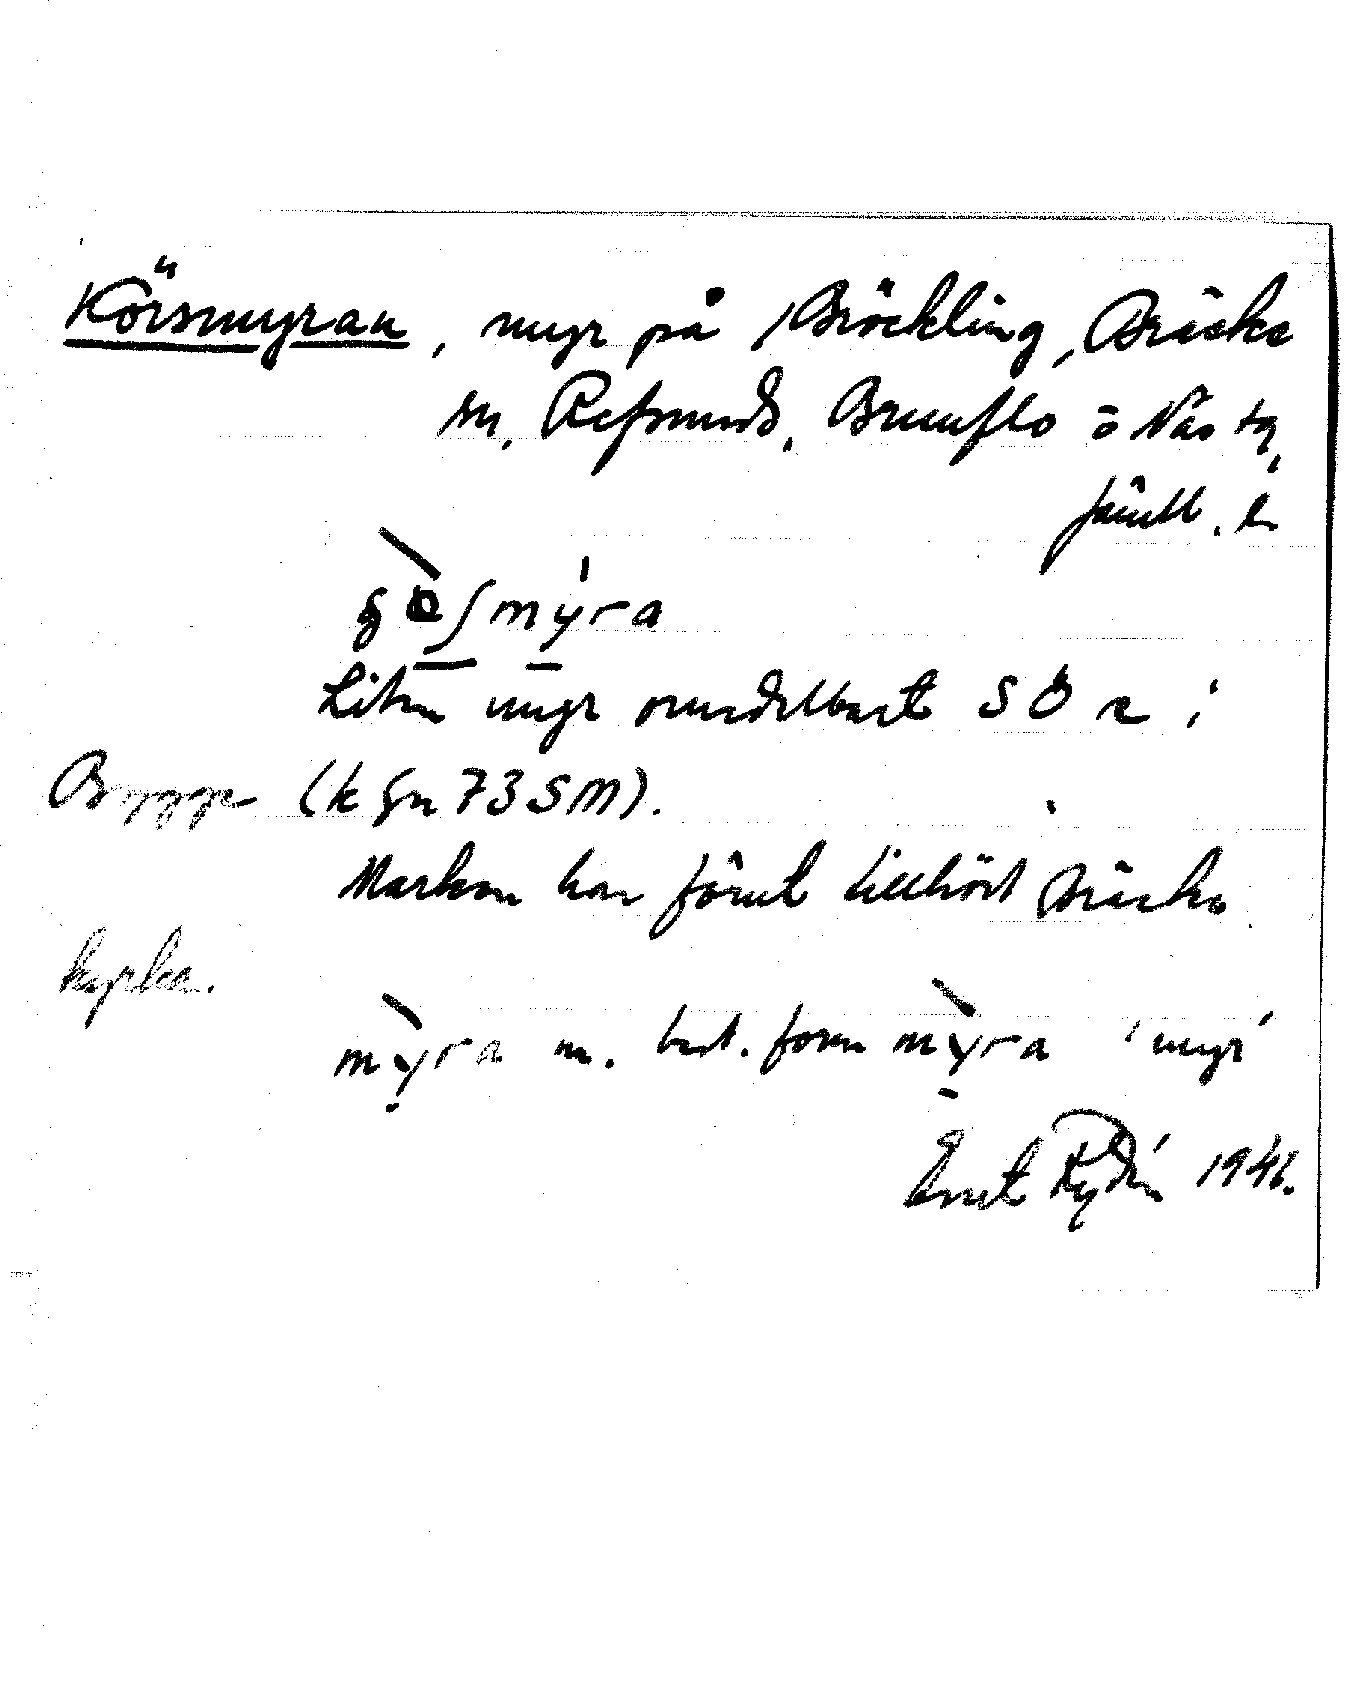 Körsmyran, myr på Bröckling, Bräcke
sn, Refsunds, Brunflo o Näs tg,
Jämtl. l.
myra
Liten myr omedelbart SÖ i
Bygge (k gn 73 SM).
Marken har förut tillhört Bräcke
kyrka.
mỳra m. best. form mỳra 'myr'
Ernst Rydén 1946.